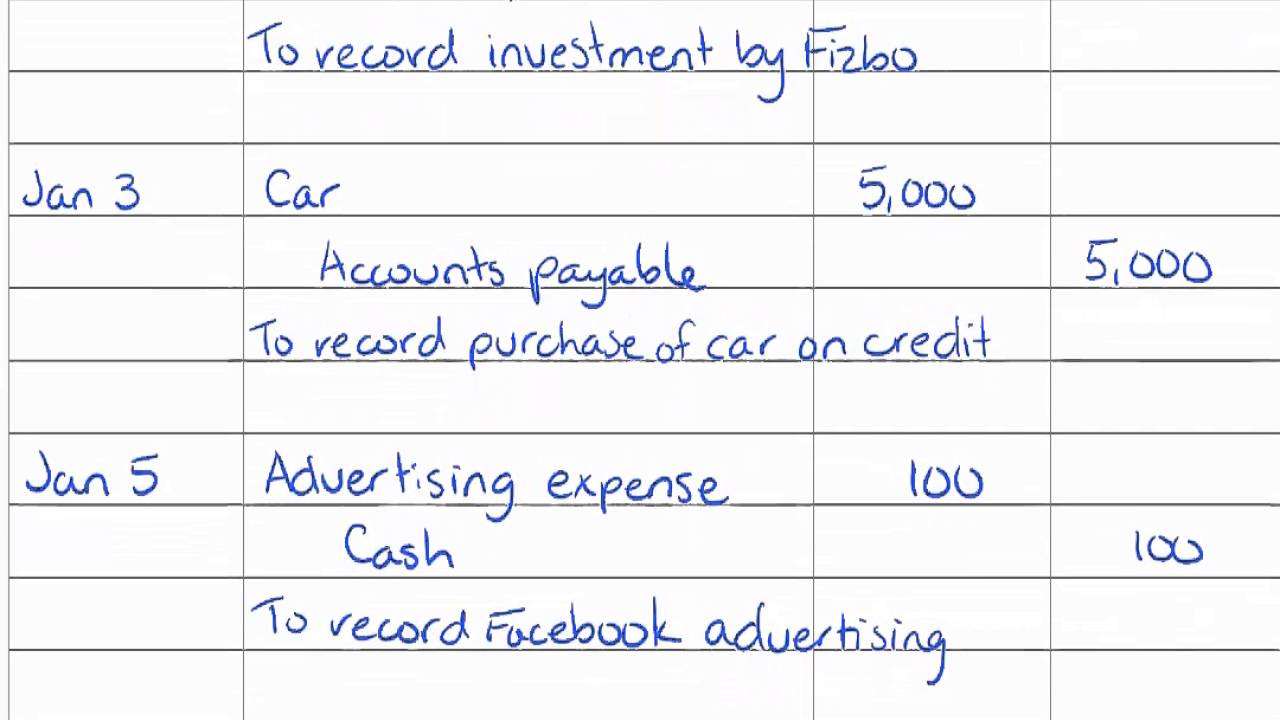 To record investment by Fizbo
Jan 3 Car 5,000
Accounts payable 5,000
To record purchase of car on credit
Jan 5 Advertising expense 100
Cash 100
To record Facebook advertising